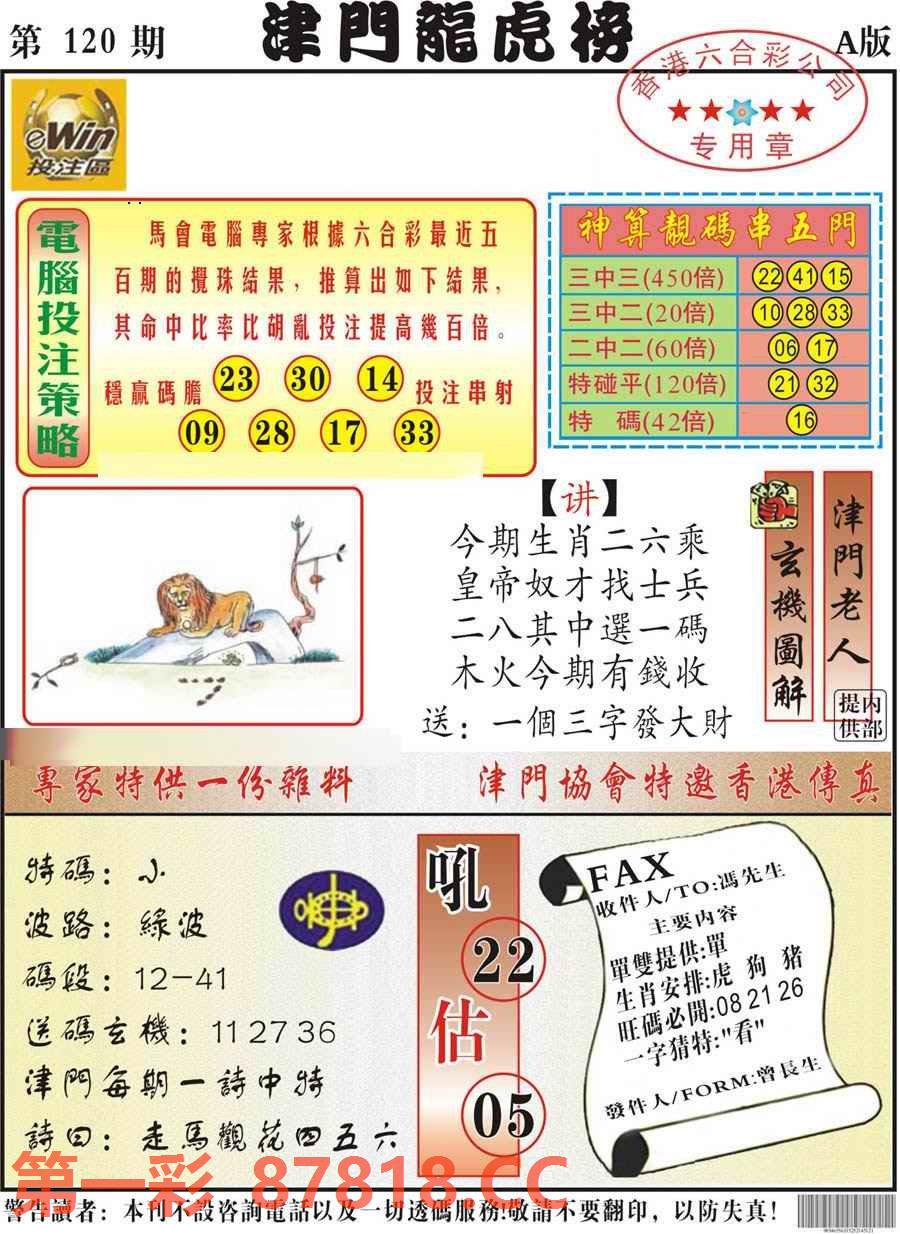 第 120 期
津門龍虎榜
A版
香港六合彩公司
专用章
eWin
投注區
電腦投注策略
馬會電腦專家根據六合彩最近五
百期的攪珠結果，推算出如下結果，
其命中比率比胡亂投注提高幾百倍。
穩贏碼膽 23 30 14 投注串射
09 28 17 33
神算靚碼串五門
三中三(450倍) 22 41 15
三中二(20倍) 10 28 33
二中二(60倍) 06 17
特碰平(120倍) 21 32
特 碼(42倍) 16
【讲】
今期生肖二六乘
皇帝奴才找士兵
二八其中選一碼
木火今期有錢收
送：一個三字發大財
玄機圖解
津門老人
内部提供
專家特供一份雜料
津門協會特邀香港傳真
特碼：小
波路：綠波
碼段：12－41
送碼玄機：11 27 36
津門每期一詩中特
詩曰：走馬觀花四五六
吼
22
估
05
FAX
收件人/TO:馮先生
主要内容
單雙提供:單
生肖安排:虎 狗 豬
旺碼必開:08 21 26
一字猜特:"看"
發件人/FORM:曾長生
第一彩 87818.CC
警告讀者：本刊不設咨詢電話以及一切透碼服務!敬請不要翻印，以防失真!